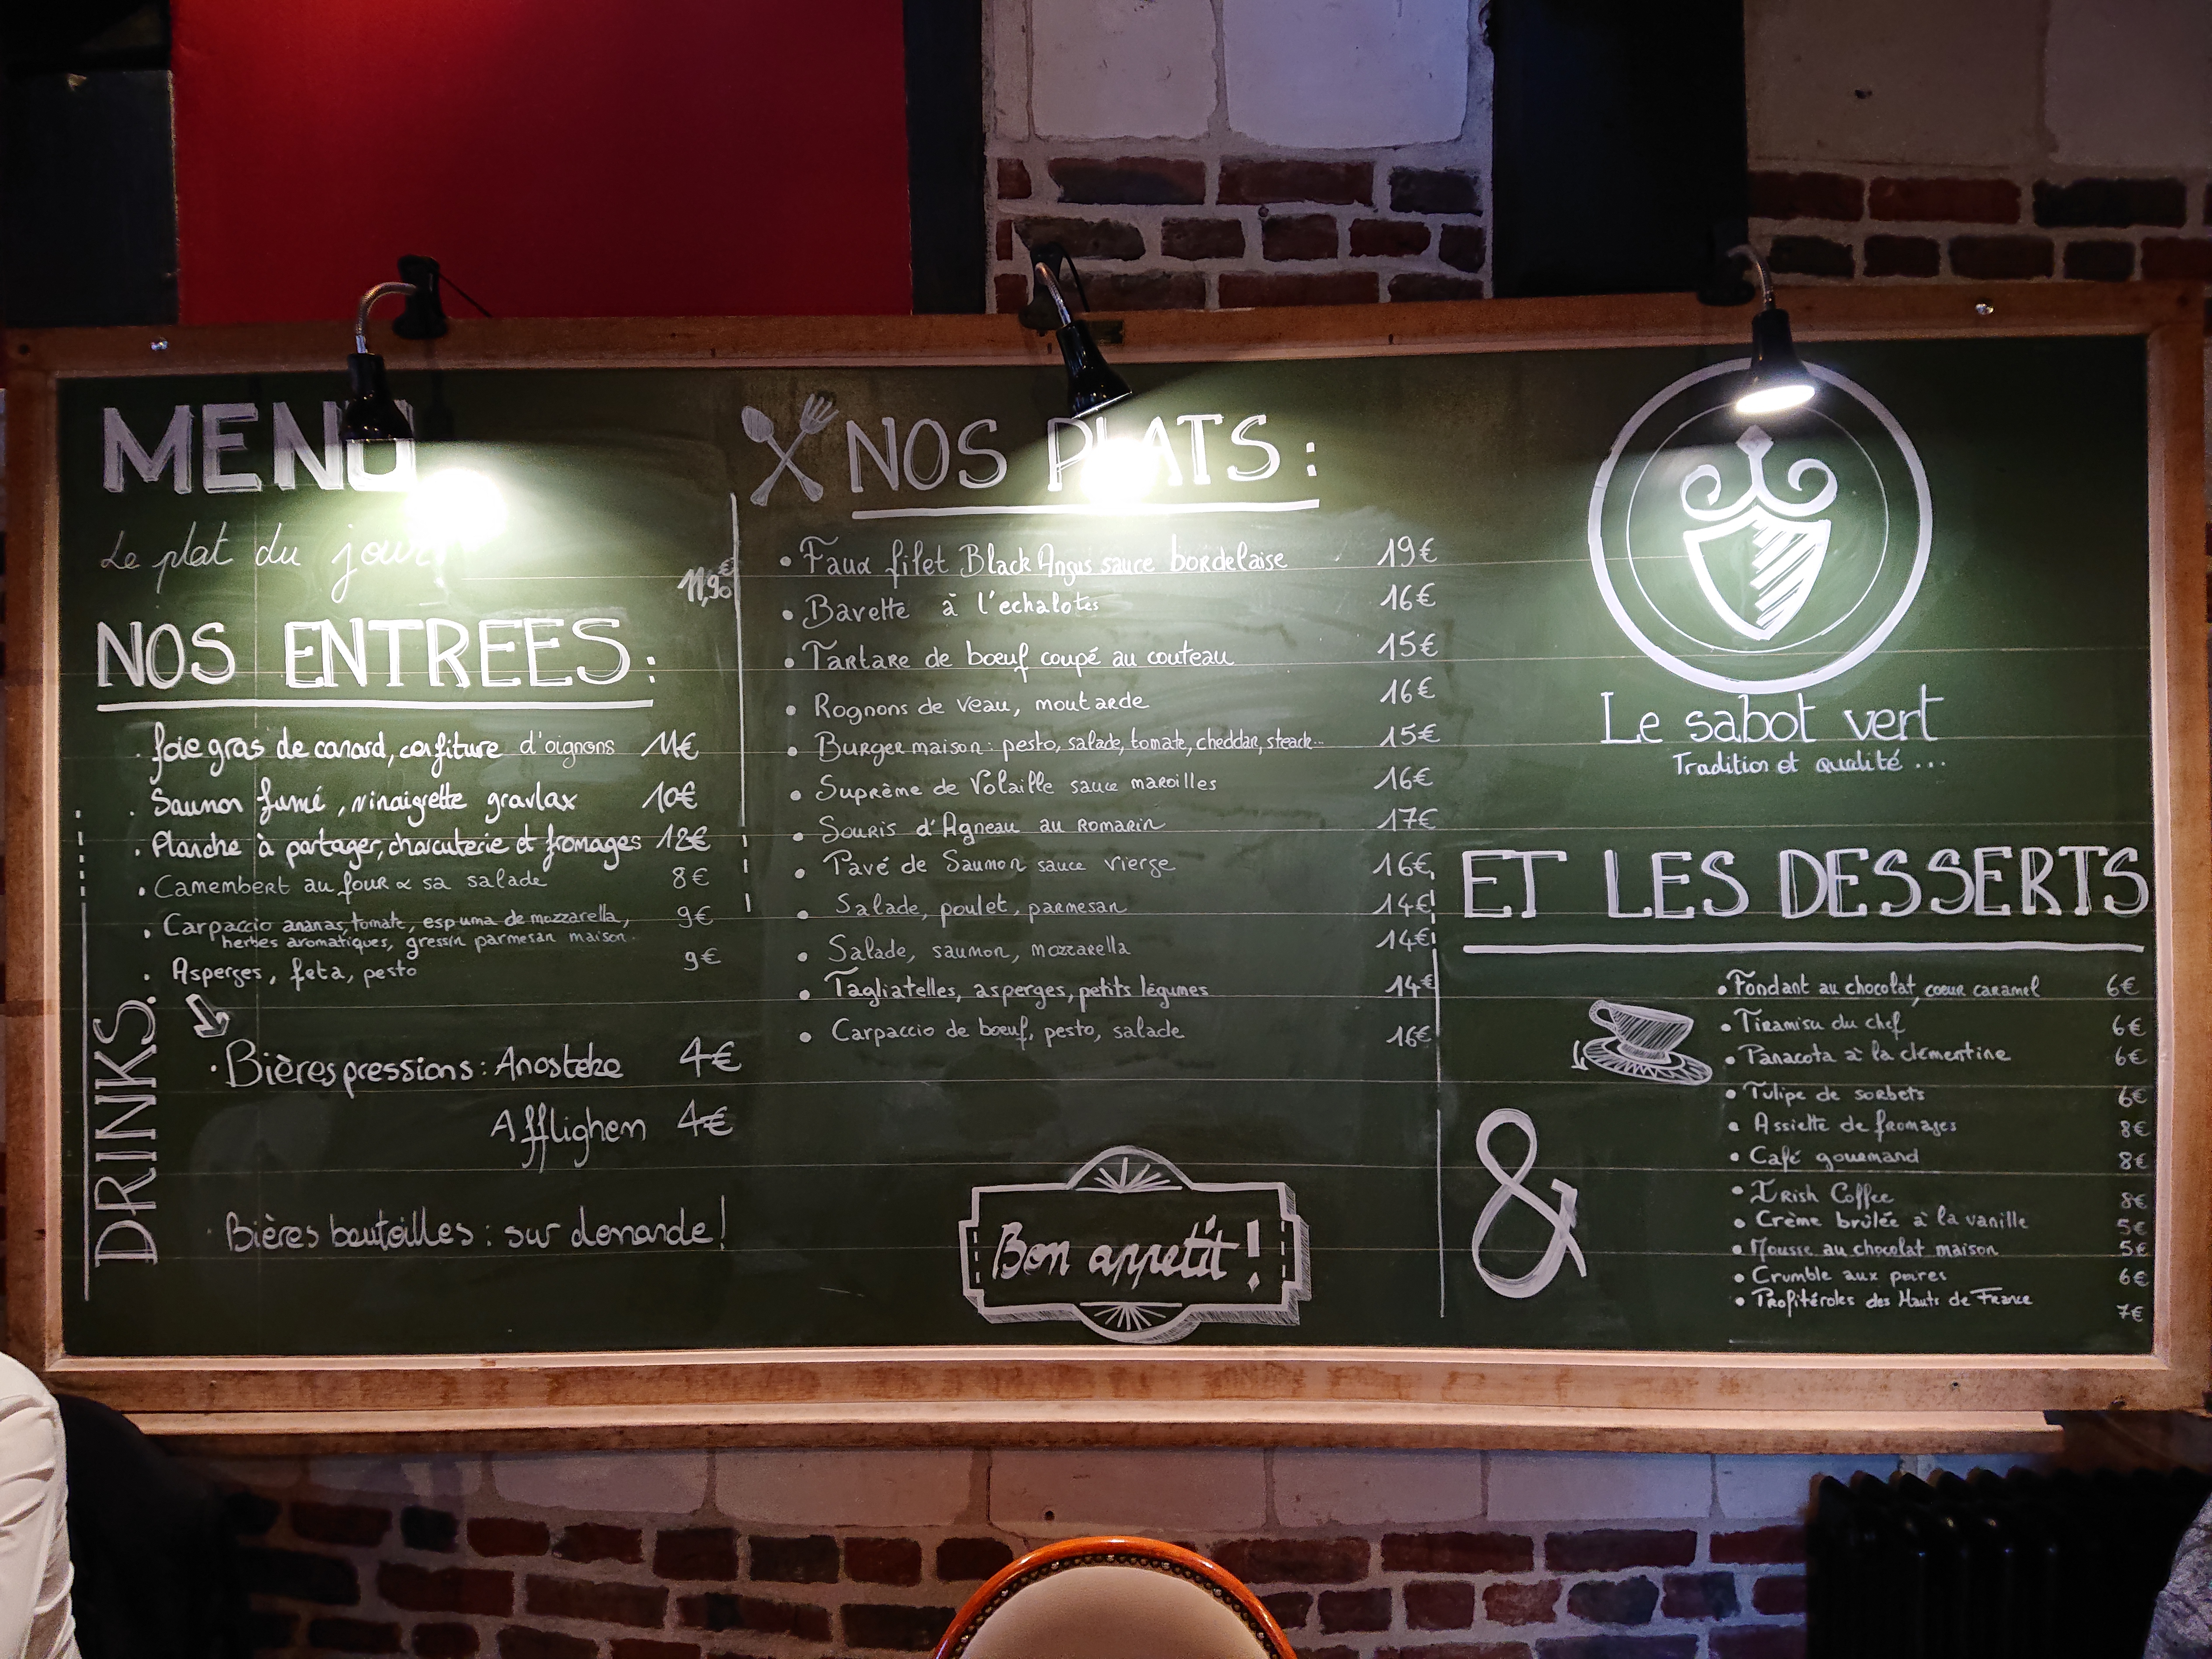 MENU
Le plat du jour 11,90€
NOS ENTREES:
foie gras de canard, confiture d'oignons 11€
Saumon fumé, vinaigrette gravlax 10€
Planche à partager, charcuterie et fromages 12€
Camembert au four & sa salade 8€
Carpaccio ananas, tomate, espuma de mozzarella, 9€
herbes aromatiques, gressin parmesan maison.
Asperges, feta, pesto 9€
DRINKS.
Bières pressions: Anosteke 4€
Afflighem 4€
Bières bouteilles: sur demande!
NOS PLATS:
Faux filet Black Angus sauce bordelaise 19€
Bavette à l'echalotes 16€
Tartare de bœuf coupé au couteau 15€
Rognons de veau, moutarde 16€
Burger maison: pesto, salade, tomate, cheddar, steack... 15€
Suprème de Volaille sauce maroilles 16€
Souris d'Agneau au Romarin 17€
Pavé de Saumon sauce vierge 16€
Salade, poulet, parmesan 14€
Salade, saumon, mozzarella 14€
Tagliatelles, asperges, petits légumes 14€
Carpaccio de bœuf, pesto, salade 16€
Bon appetit!
Le sabot vert
Tradition et qualité ...
ET LES DESSERTS
Fondant au chocolat, coeur caramel 6€
Tiramisu du chef 6€
Panacota à la clémentine 6€
Tulipe de sorbets 6€
Assiette de fromages 8€
Café gourmand 8€
&
Irish Coffee 8€
Crème brûlée à la vanille 5€
Mousse au chocolat maison 5€
Crumble aux poires 6€
Profitéroles des Hauts de France 7€